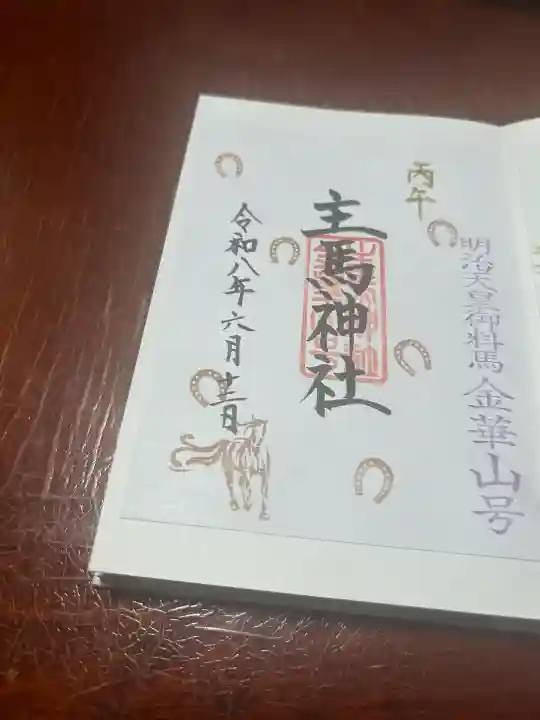 丙午
明治天皇御料馬 金華山号
主馬神社
令和八年六月十三日